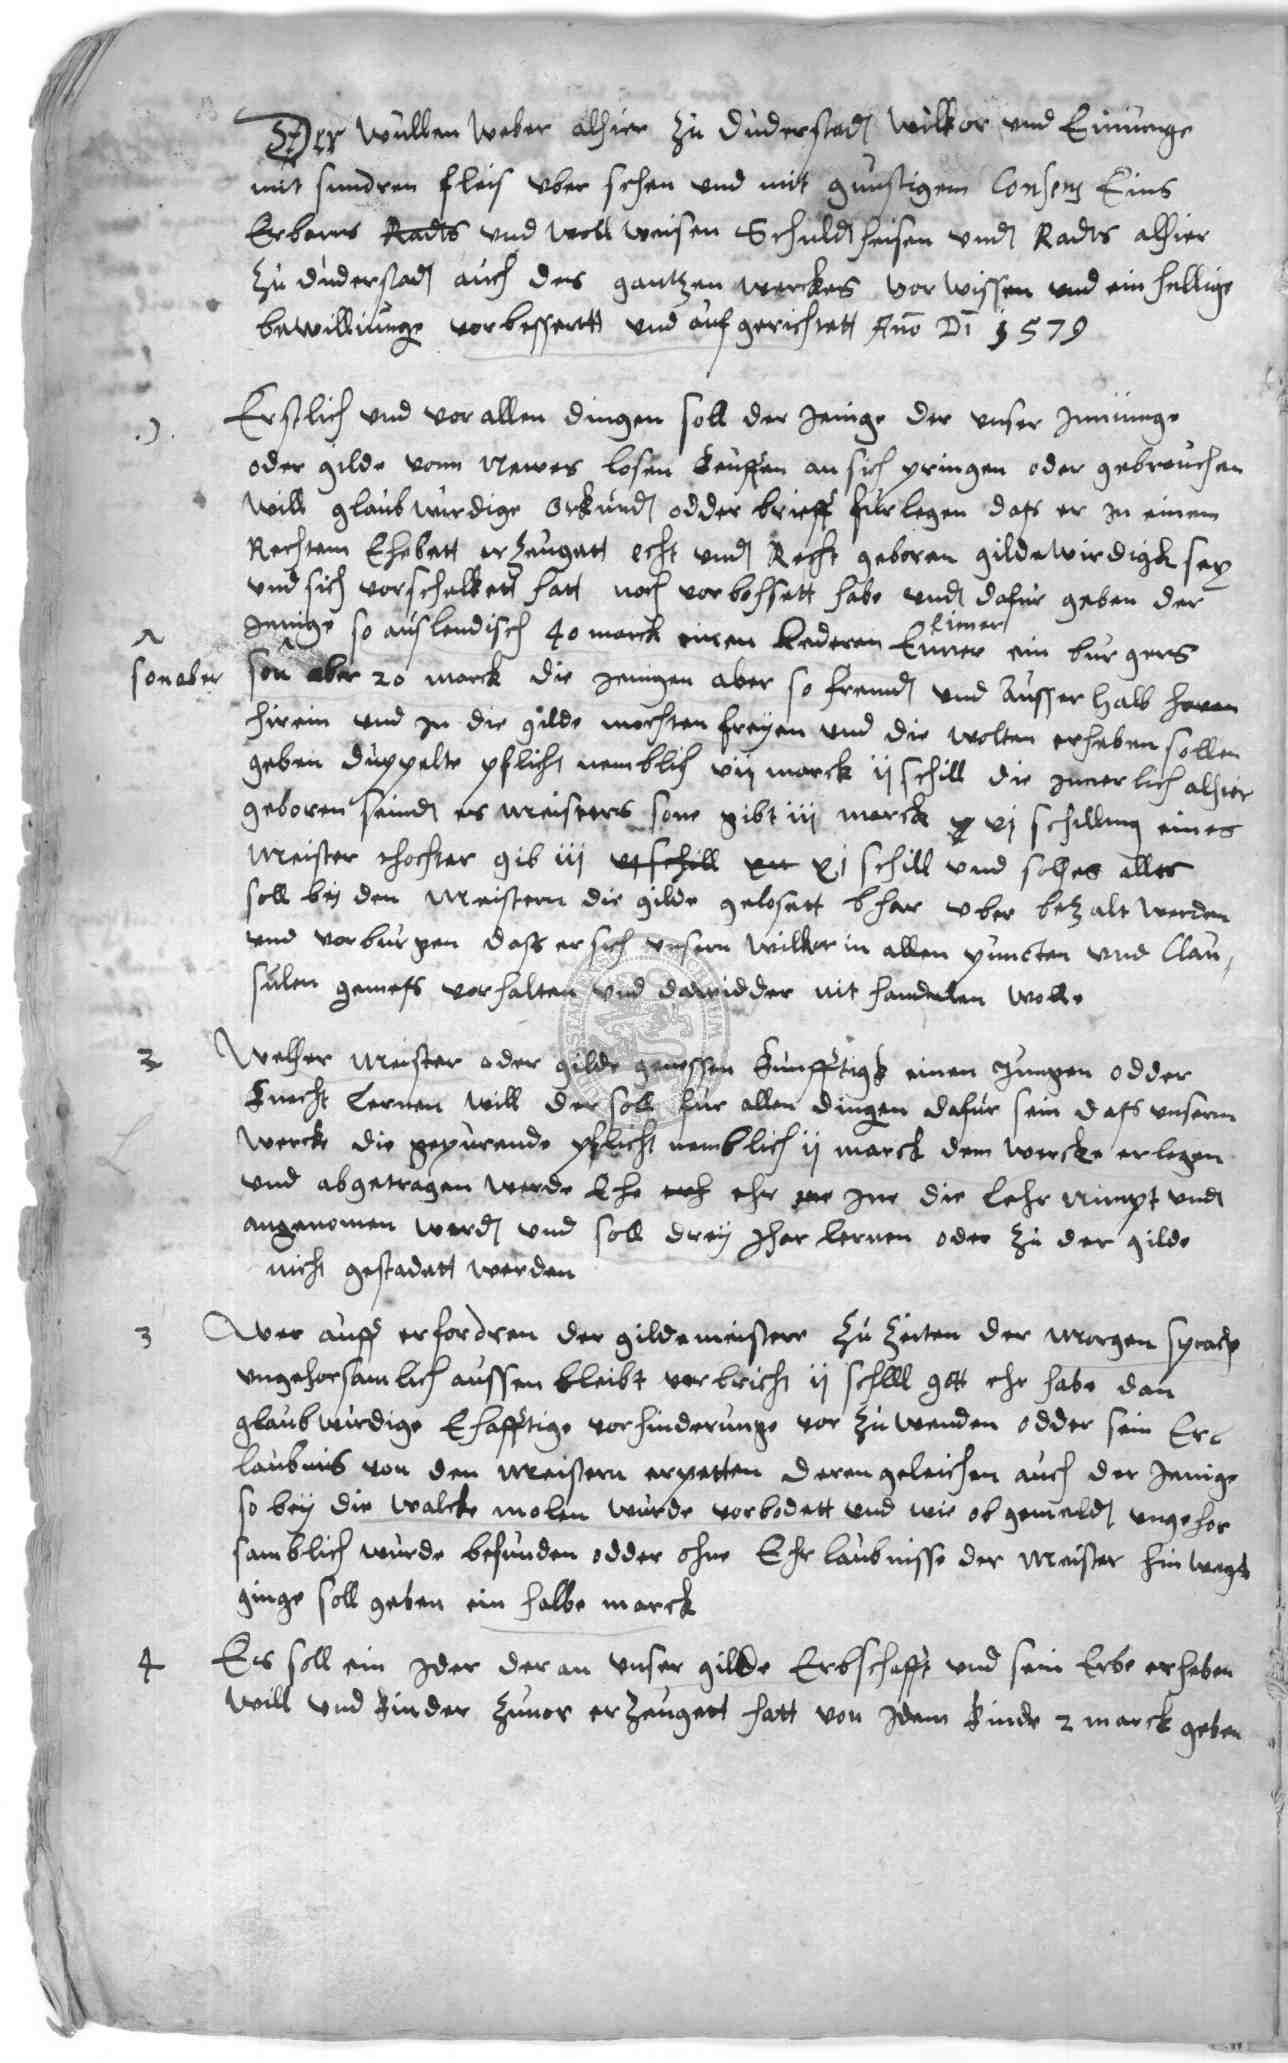 Der wullen weber alhier zu duderstadt wilkor und Einunge
mit sundren fleis uber sehen und mit gunstigem Consens Eins
Erbarns Radts und woll weisen Schuldtheisen undt Radts alhier
zu duderstadt auch des gantzen werckes vorwissen und einhellige
bewillinunge vorbessertt und aufgerichtett Ano Di 1579
1. Erstlich und vor allen dingen soll der Jenige der unser Jnnunge
oder gilde vonn Newes losen keuffen an sich pringen oder gebrauchen
will glaubwurdige Orkundt odder brieff furlegen dass er in einem
Rechtem Ehebett erzeugett echt undt Recht geboren gildewirdigk sey
und sich vorschelkett hatt noch vorbossett habe undt dafur geben der
Jenige so auslendisch 40 marck einen lederen Emer ein burgers
Eimer
son aber son aber 20 marck die Jenigen aber so fremdt und Ausserhalb heren
hirein und in die gilde mochten freyen und die wolten erheben sollen
geben duppelte pflicht nemblich vii marck ii schill die innerlich alhier
geboren seindt es meisters sone gibt iii marck vi schilling eines
Meister thochter gib iii vi schill xi schill und solhes alles
soll bey den Meistern die gilde gelosett bhar uber betzalt werden
und vorburgen dass er sich unsern wilkor in allen puncten und Clau,
sulen gemess vorhalten und dawidder nit handelen wolle
2 Welher Meister oder gilde genossen kunfftigk einen Jungen odder
knecht lernen will der soll fur allen dingen dafur sein dass unserm
wercke die gepurende pflicht nemblich ii marck dem wercke erlegen
und abgetragen werde Ehe ehr Jne die lehr Nimpt undt
angenomen werdt und soll drey Jhar lernen oder zu der gilde
nicht gestadett werden
3 Wer auff erfordren der gildemeister zu Zeiten der Morgensprach
ungehorsamlich aussen bleibt verbricht ii schilll gtt ehr habe dan
glaubwurdige Ehafftige vorhinderunge vor zu wenden odder sein Er
laubnis von den Meistern erpetten deren geleichen auch der Jenige
so bey die walcke molen wurde vorbodett und wie obgemeldt ungehor
samblich wurde befunden odder ohne Ehrlaubnisse der Meister hinwegk
ginge soll geben ein halbe marck
4 Es soll ein Jder der an unser gilde Erbschafft und sein Erbe erheben
will und kinder zuvor erzeugett hatt von Jdem kinde 2 marck geben